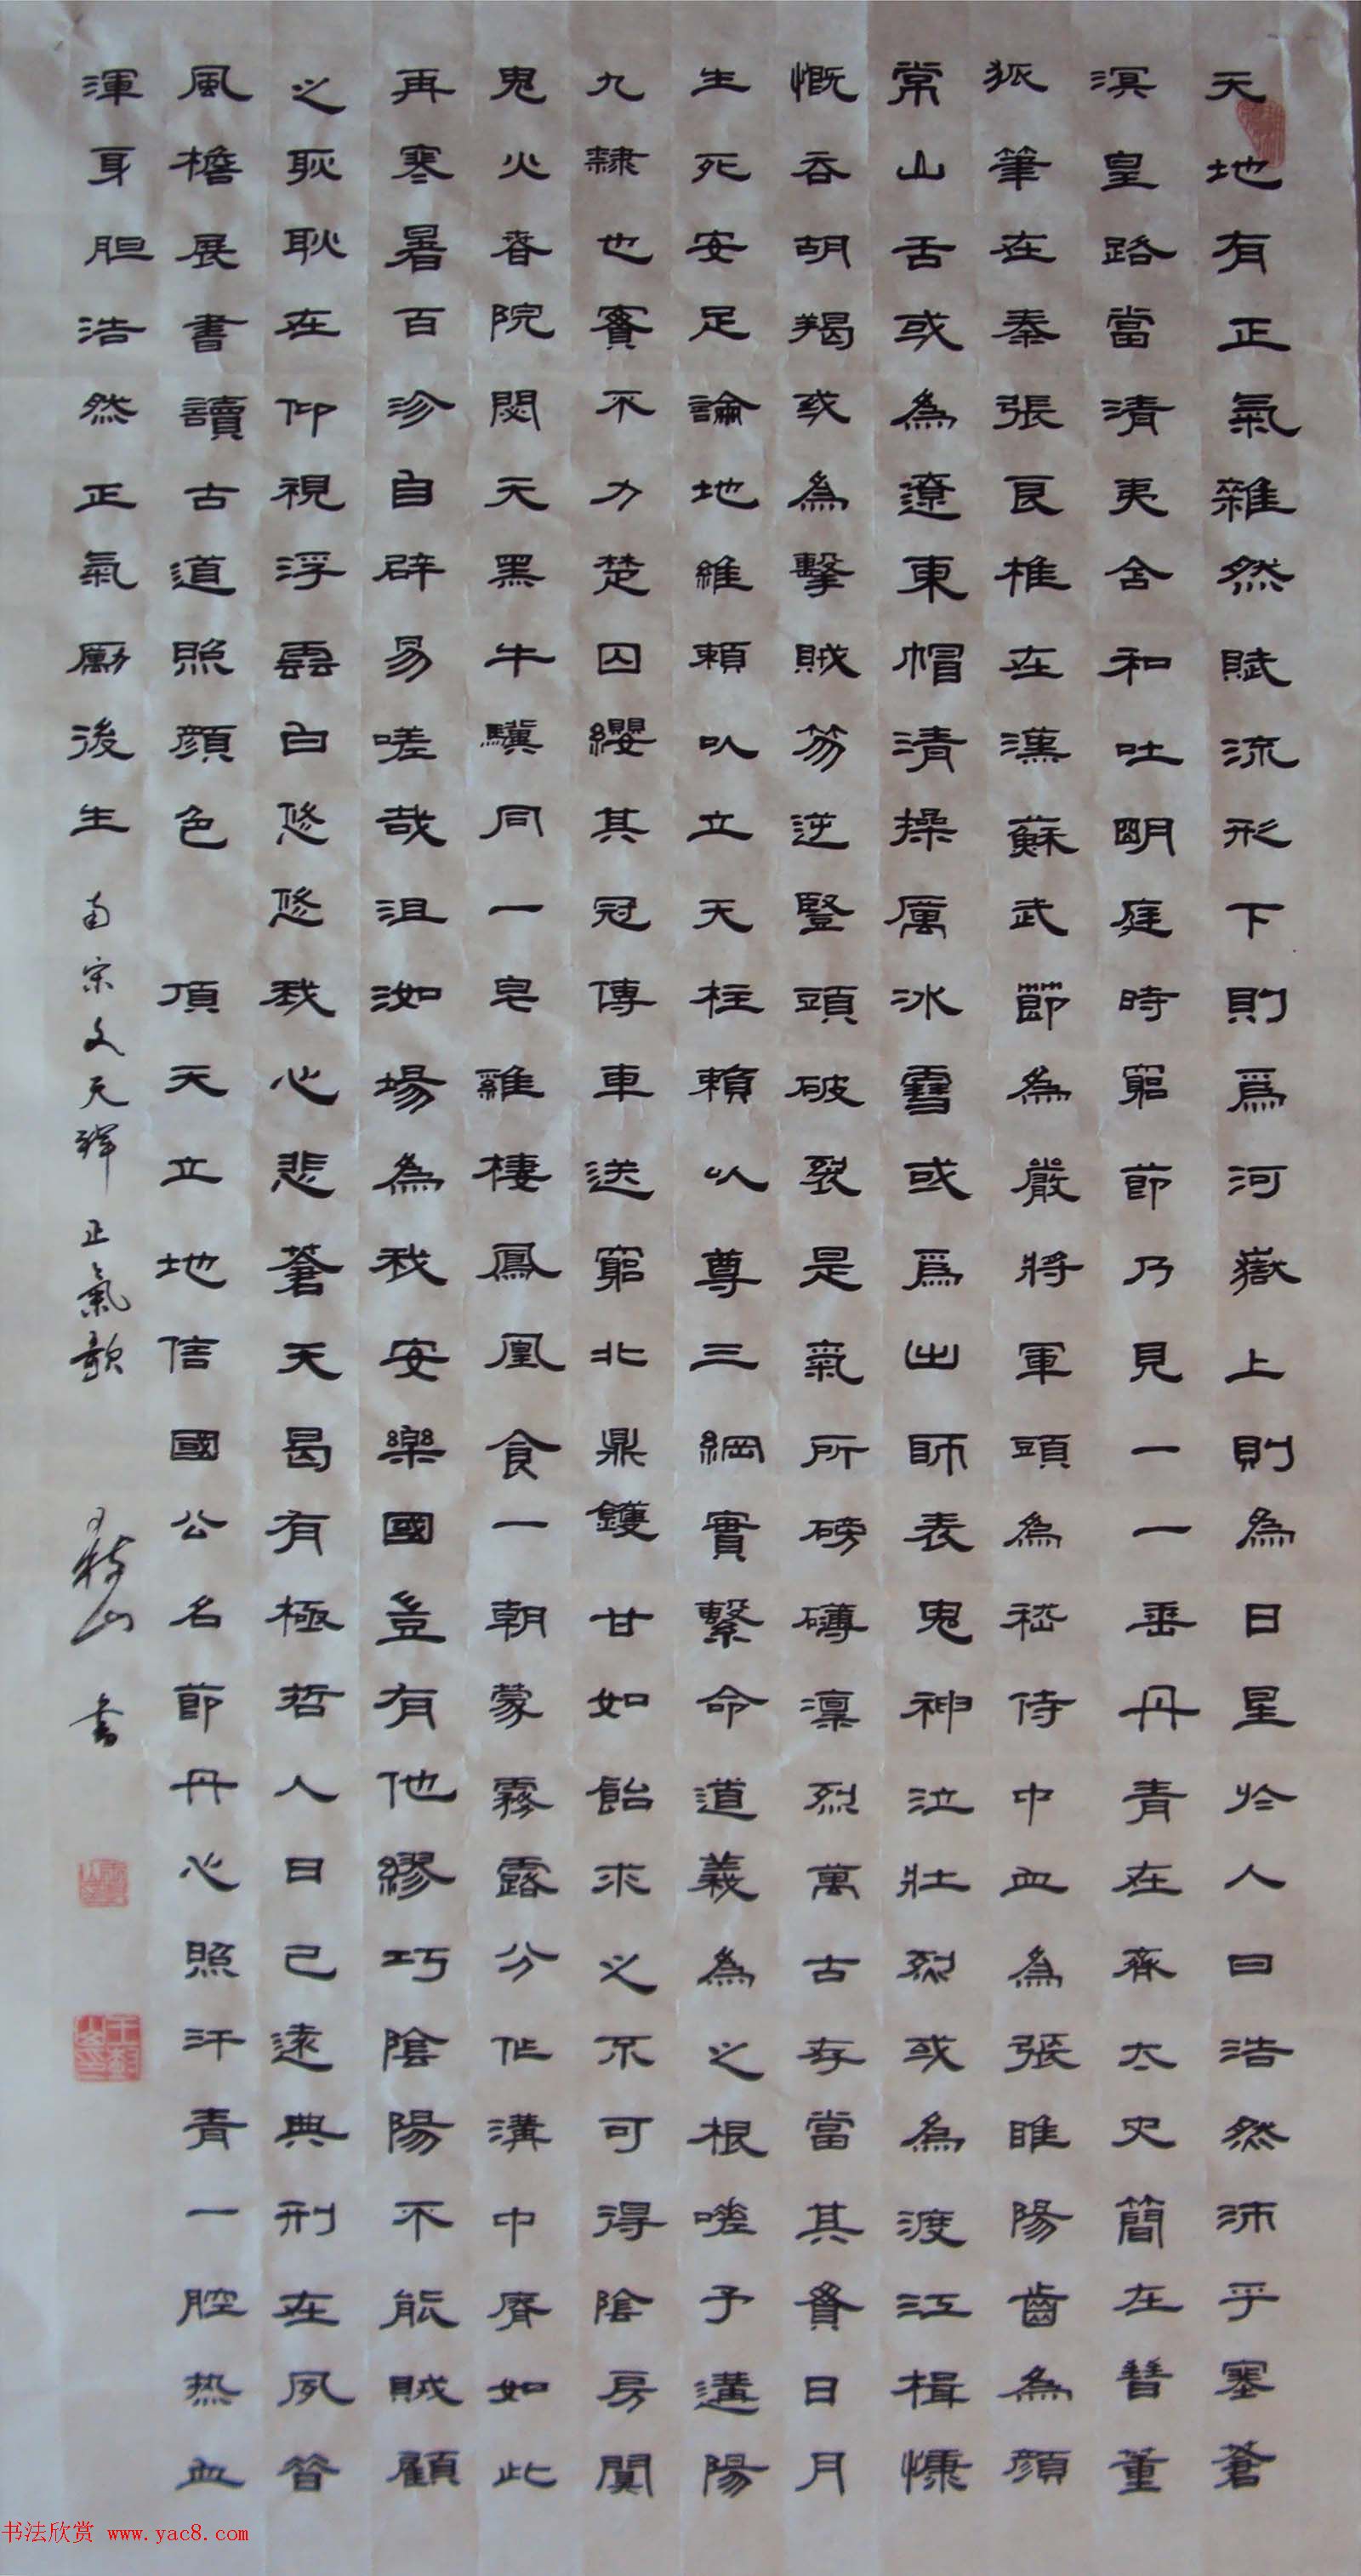 天地有正氣雜然賦流形下則爲河嶽上則為日星於人曰浩然沛乎塞蒼
溟皇路當清夷含和吐明庭時窮節乃見一一垂丹青在齊太史簡在晉董
狐筆在秦張良椎在漢蘇武節為嚴將軍頭為嵇侍中血為張睢陽齒為顏
常山舌或為遼東帽清操厲冰雪或爲出師表鬼神泣壯烈或為渡江楫慷
慨吞胡羯或為擊賊笏逆豎頭破裂是氣所磅礴凜烈萬古存當其貫日月
生死安足論地維賴以立天柱賴以尊三綱實繫命道義為之根嗟予遘陽
九隸也實不力楚囚纓其冠傳車送窮北鼎鑊甘如飴求之不可得陰房闃
鬼火春院閟天黑牛驥同一皂雞棲鳳凰食一朝蒙霧露分作溝中瘠如此
再寒暑百沴自辟易嗟哉沮洳場為我安樂國豈有他繆巧陰陽不能賊顧
之耿耿在仰視浮雲白悠悠我心悲蒼天曷有極哲人日已遠典刑在夙昔
風檐展書讀古道照顏色 頂天立地信國公名節丹心照汗青一腔热血
渾身胆浩然正氣勵後生 南宋文天祥 正氣歌 山書
书法欣赏 www.yac8.com